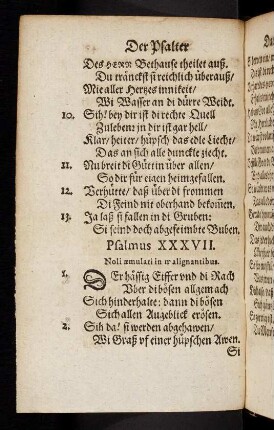 Der Psalter
Des HERR Bethause theilet auß.
Du tränckst si reichlich überauß/
Mit aller Herzes innikeit/
Wi Wasser an di dürre Weidt.
10. Sih! bey dir ist di rechte Quell
Zuleben; in dir ist gar hell/
Klar/heiter/hüpsch das edle Liecht/
Das an sich alle dunckle ziecht.
11. Nu breit di Güte in über allen/
So dir für eigen heimgefallen.
12. Verhütte/ daß über di frommen
Di Feind nit oberhand bekommen.
13. Ja laß si fallen in di Gruben:
Si seind doch abgefeimbte Buben.
Psalmus XXXVII.
Noli æmulati in malignantibus.
1. DEr hässig Eiffer vnd di Rach
Vber di bösen allgemach
Sich hinderhalte: dann di bösen
Sich allen Augeblick erösen.
2. Sih da! si werden abgehawen/
Wi Graß vf einer hüpschen Awen.
Si